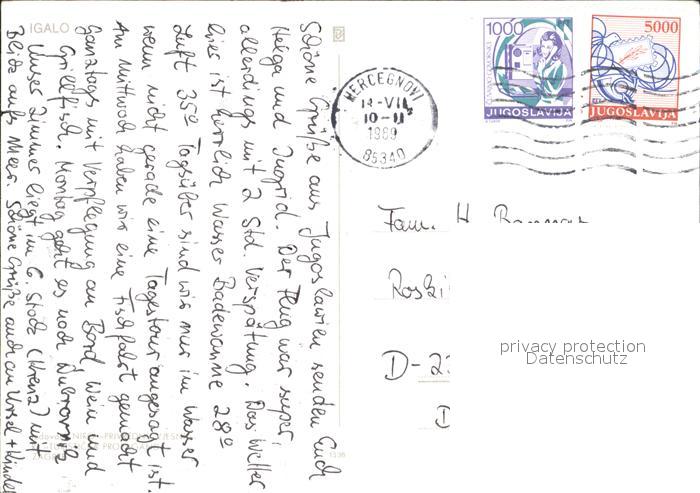 IGALO
Schöne Grüße aus Jugoslawien senden Euch
Helga und Ingrid. Der Flug war super,
allerdings mit 2 Std. Verspätung. Das Wetter
hier ist herrlich Wasser Badewanne 28°
Luft 35° Tagsüber sind wir nur im Wasser
wenn nicht gerade eine Tagestour angesagt ist.
Am Mittwoch haben wir eine Fischfahrt gemacht
Ganztags mit Verpflegung an Bord Wein und
Grillfisch. Montag geht es nach Dubrovnik
Unser Zimmer liegt im 6. Stock mit
Blick aufs Meer. Schöne Grüße auch an Ursel + Kinder
1000
JUGOSLAVIJA
5000
JUGOSLAVIJA
HERCEGNOVI
1989
85340
Fam. H.
D-2
privacy protection
Datenschutz